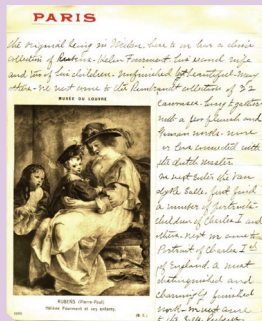 PARIS
the original being in Vienna here to we have a classic
collection of Rubens - Helen Fourment his second wife
and two of his children. Unfinished but beautiful. Many
others - we next come to the Rembrandt collection of 32
MUSÉE DU LOUVRE
canvasses
with a few
human
or less connected with
the dutch master
we next enter the Van
dyke Salle. first find
a number of portraits
children of Charles I and
others. next we come to
Portrait of Charles I st
of England a most
distinguished and
charmingly finished
work. We next come
to the
RUBENS (Pierre-Paul)
Hélène Fourment et ses enfants.